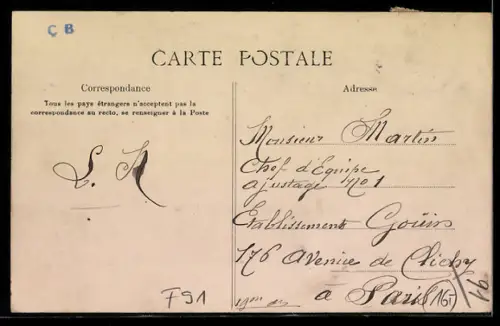 C B
CARTE POSTALE
Correspondance
Tous les pays étrangers n'acceptent pas la
correspondance au recto, se renseigner à la Poste
L. M
F91
Adresse
Monsieur Martin
Chef d'Equipe
ajustage No 1
Etablissements Goüin
176 Avenue de Clichy
à Paris
91